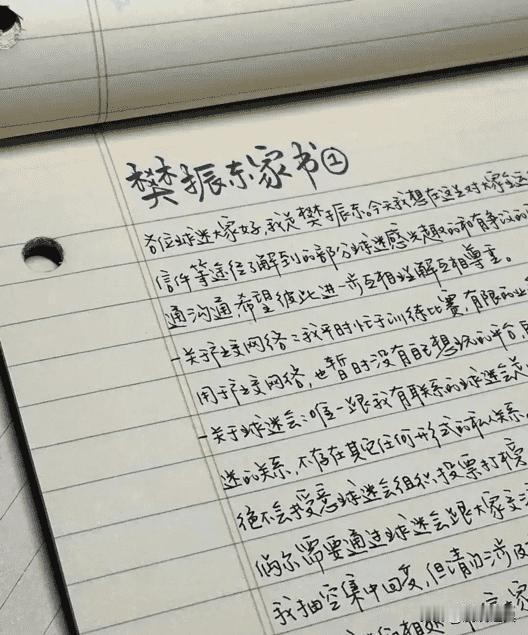 樊振东家书①
各位球迷大家好,我是樊振东。今天我想在这里对大家
信件等途径了解到的部分球迷感兴趣的和有争议的
通沟通,希望彼此进一步互相理解互相尊重。
-关于社交网络:我平时忙于训练比赛,有限的
用于社交网络,也暂时没有自己想玩的平台,
-关于球迷会:唯一跟我有联系的球迷会是
迷的关系、不存在其它任何形式的私人关系,
绝不会授意球迷会组织投票打榜
偶尔需要通过球迷会跟大家交
我抽空集中回复,但请勿涉及
相处